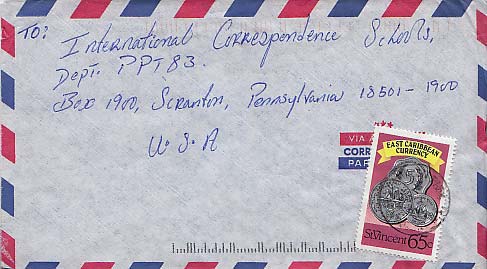 TO: International Correspondence Schools,
Dept. PPT83.
Box 1900, Scranton, Pennsylvania 18501-1900
U.S.A
VIA
CORR
PAR
EAST CARIBBEAN
CURRENCY
St Vincent 65c